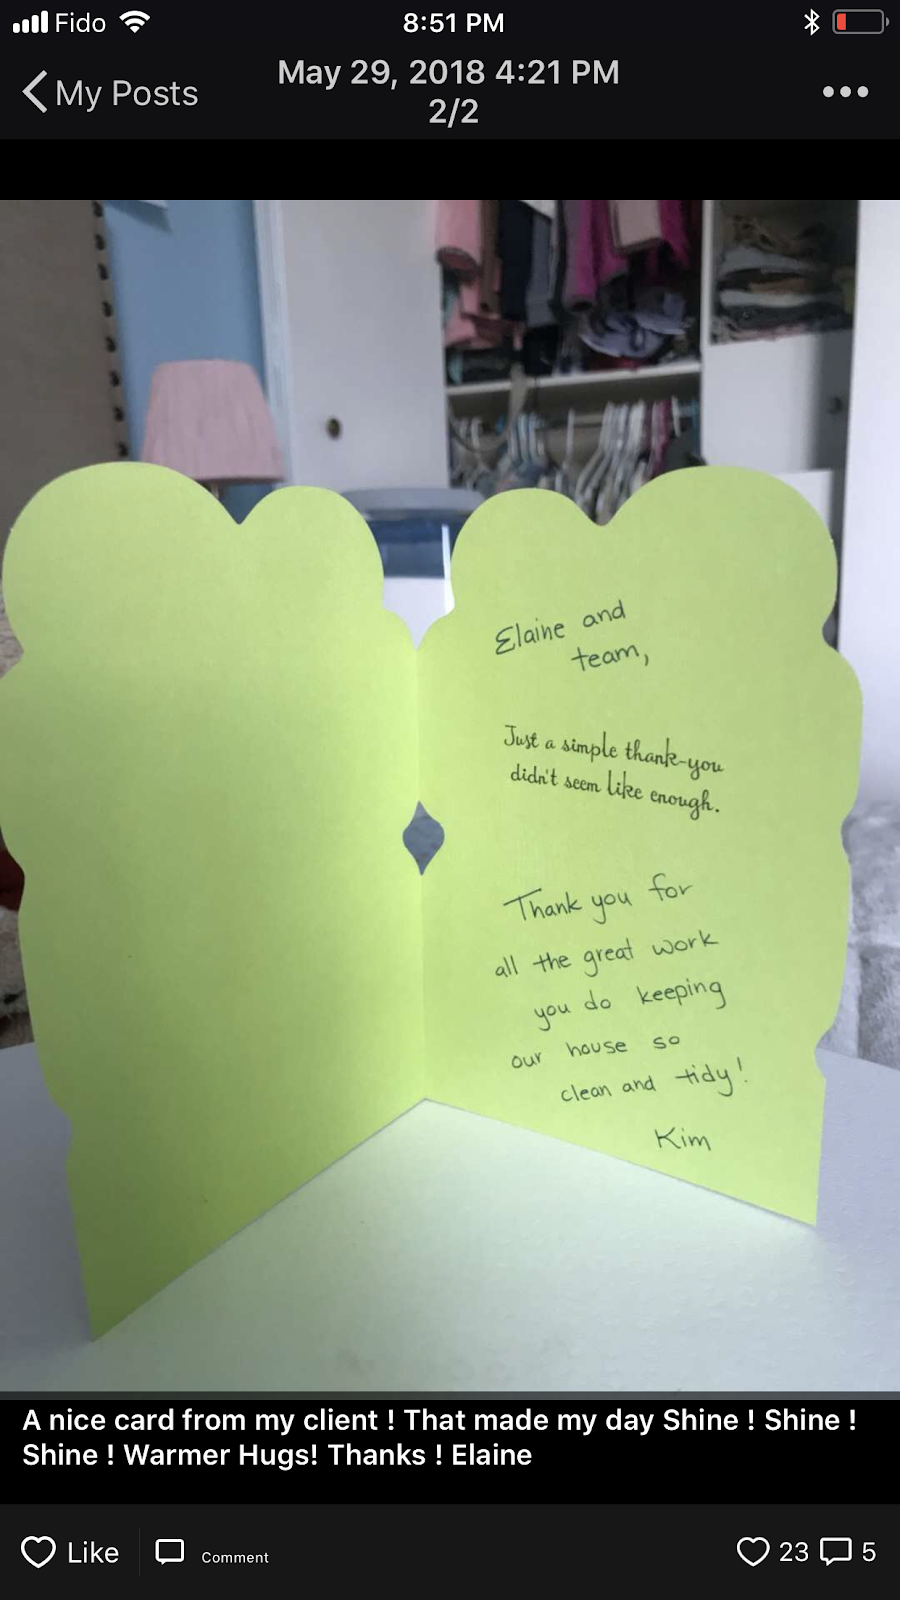 Fido
8:51 PM
My Posts
May 29, 2018 4:21 PM
2/2
Elaine and
team,
Just a simple thank-you
didn't seem like enough.
Thank you for
all the great work
you do keeping
our house so
clean and tidy!
Kim
A nice card from my client ! That made my day Shine ! Shine !
Shine ! Warmer Hugs! Thanks ! Elaine
Like
Comment
23
5